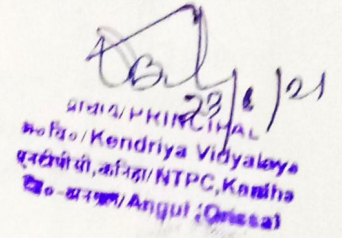 23/6/21
प्राचार्य/PRINCIPAL
के०वि०/Kendriya Vidyalaya
एनटीपीसी,कनिहा/NTPC,Kaniha
जि०-अनगुल/Angul (Orissa)